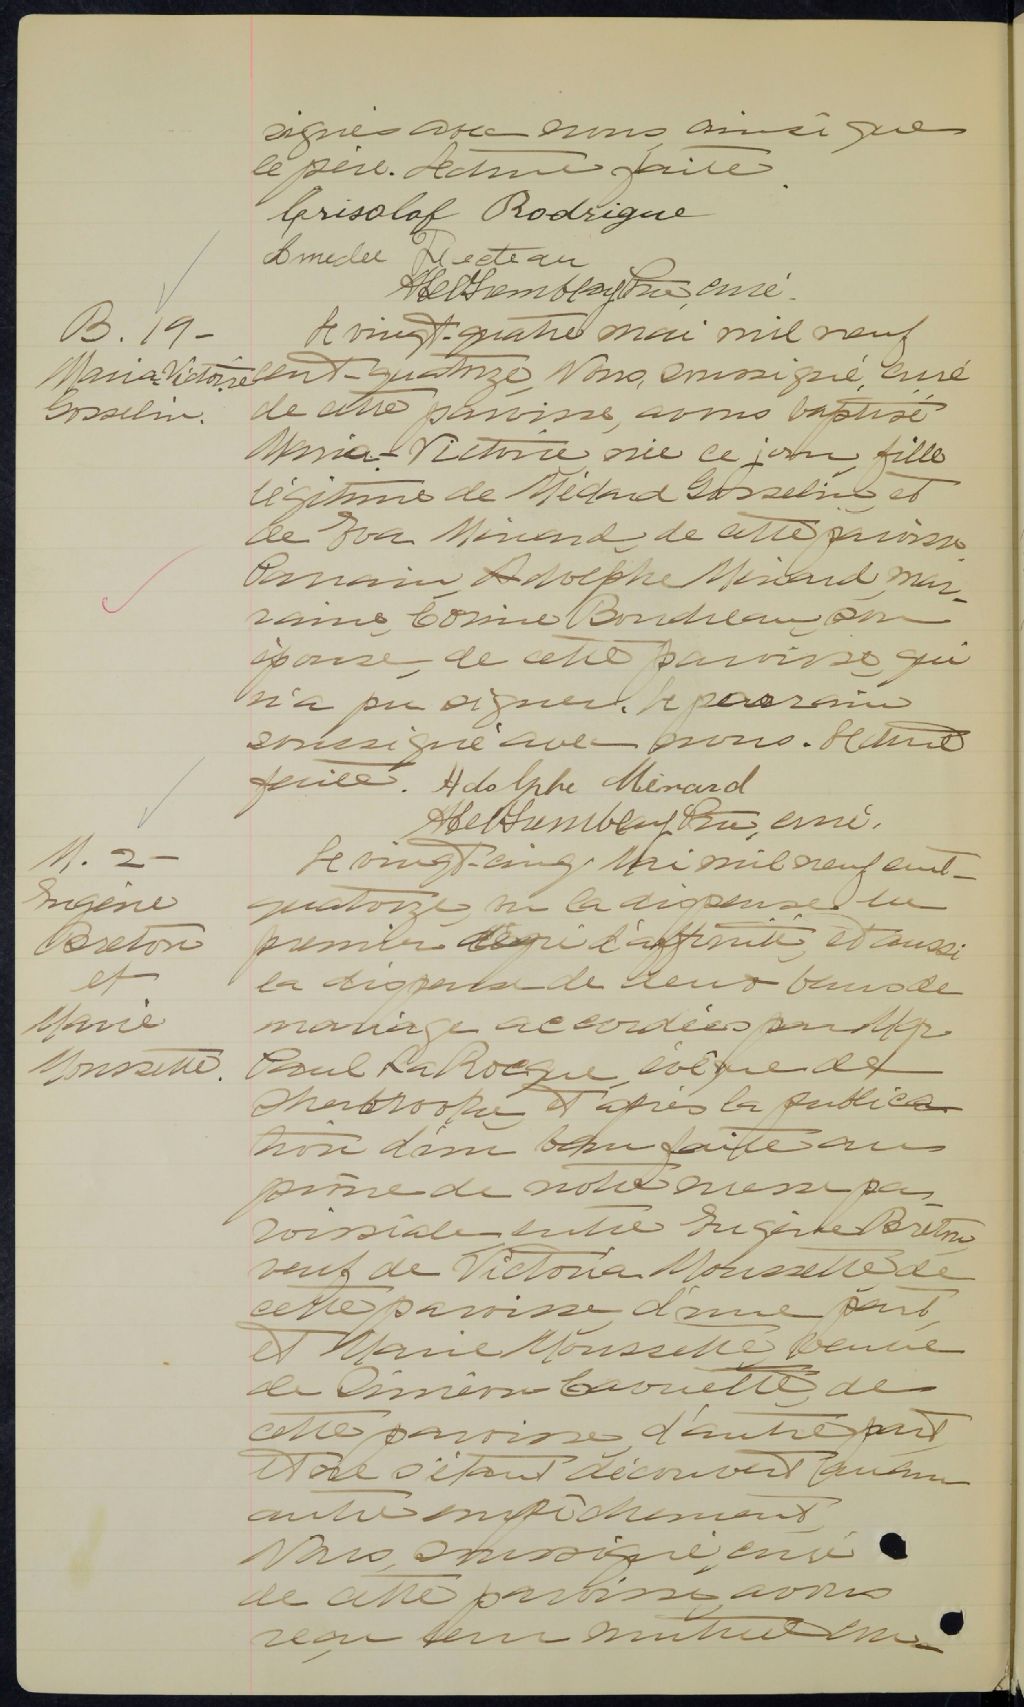 signés avec nous ainsi que
le père. Lecture faite.
Crisolof Rodrigue
Amedée Fecteau
Tremblay Ptre, curé.
B. 19-
Maria-Victoire
Gosselin.
Le vingt-quatre mai mil neuf
cent-quatorze, Nous, soussigné, curé
de cette paroisse, avons baptisé
Maria-Victoire née ce jour, fille
légitime de Médard Gosselin et
de Eva Ménard, de cette paroisse
Parrain, Adolphe Ménard, mar-
raine, Corine Boudreau, son
épouse, de cette paroisse, qui
n'a pu signer. Le parrain
soussigné avec nous. Lecture
faite. Adolphe Ménard
Tremblay Ptre, curé.
M. 2-
Eugène
Breton
et
Marie
Moussette.
Le vingt-cinq Mai mil neuf cent-
quatorze, vu la dispense du
premier degré d'affinité, et aussi
la dispense de deux bans de
mariage accordées par Mgr
Paul LaRocque, évêque de
Sherbrooke, et après la publica
tion d'un ban faite au
prône de notre messe pa-
roissiale, entre Eugène Breton,
veuf de Victoria Moussette de
cette paroisse, d'une part,
et Marie Moussette, veuve
de Siméon Caouette, de
cette paroisse, d'autre part,
et ne s'étant découvert aucun
autre empêchement,
Nous, soussigné, curé
de cette paroisse, avons
reçu leur mutuel con-